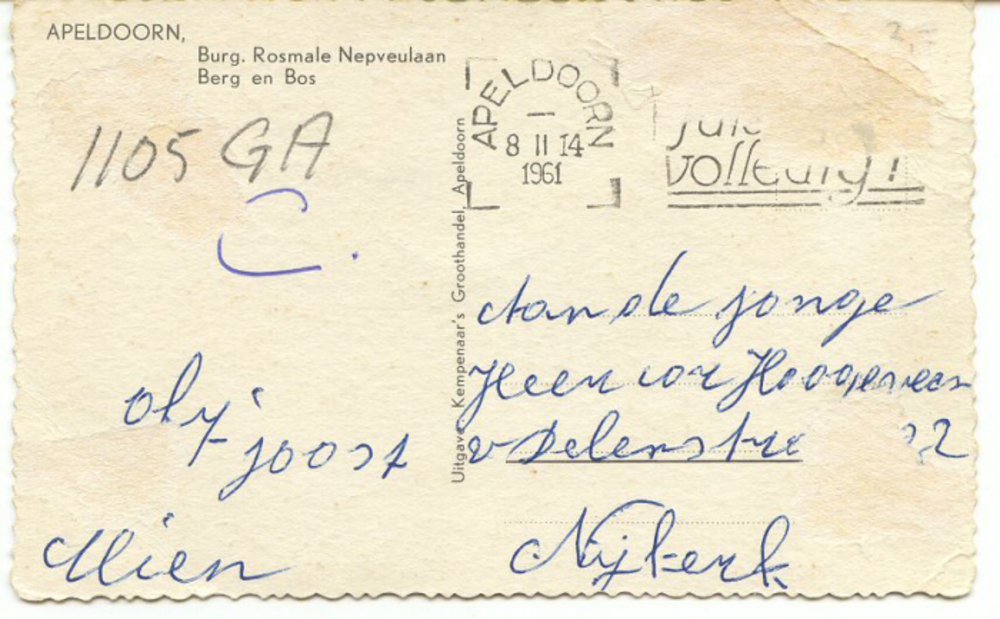 APELDOORN,
Burg. Rosmale Nepveulaan
Berg en Bos
1105 GA
C.
Joost
Mien
Uitgave: Kempenaar's Groothandel, Apeldoorn
APELDOORN
8 II 14
1961
volledig!
Aan de jonge
Heer Cor Hoogeveen
22
Nijkerk